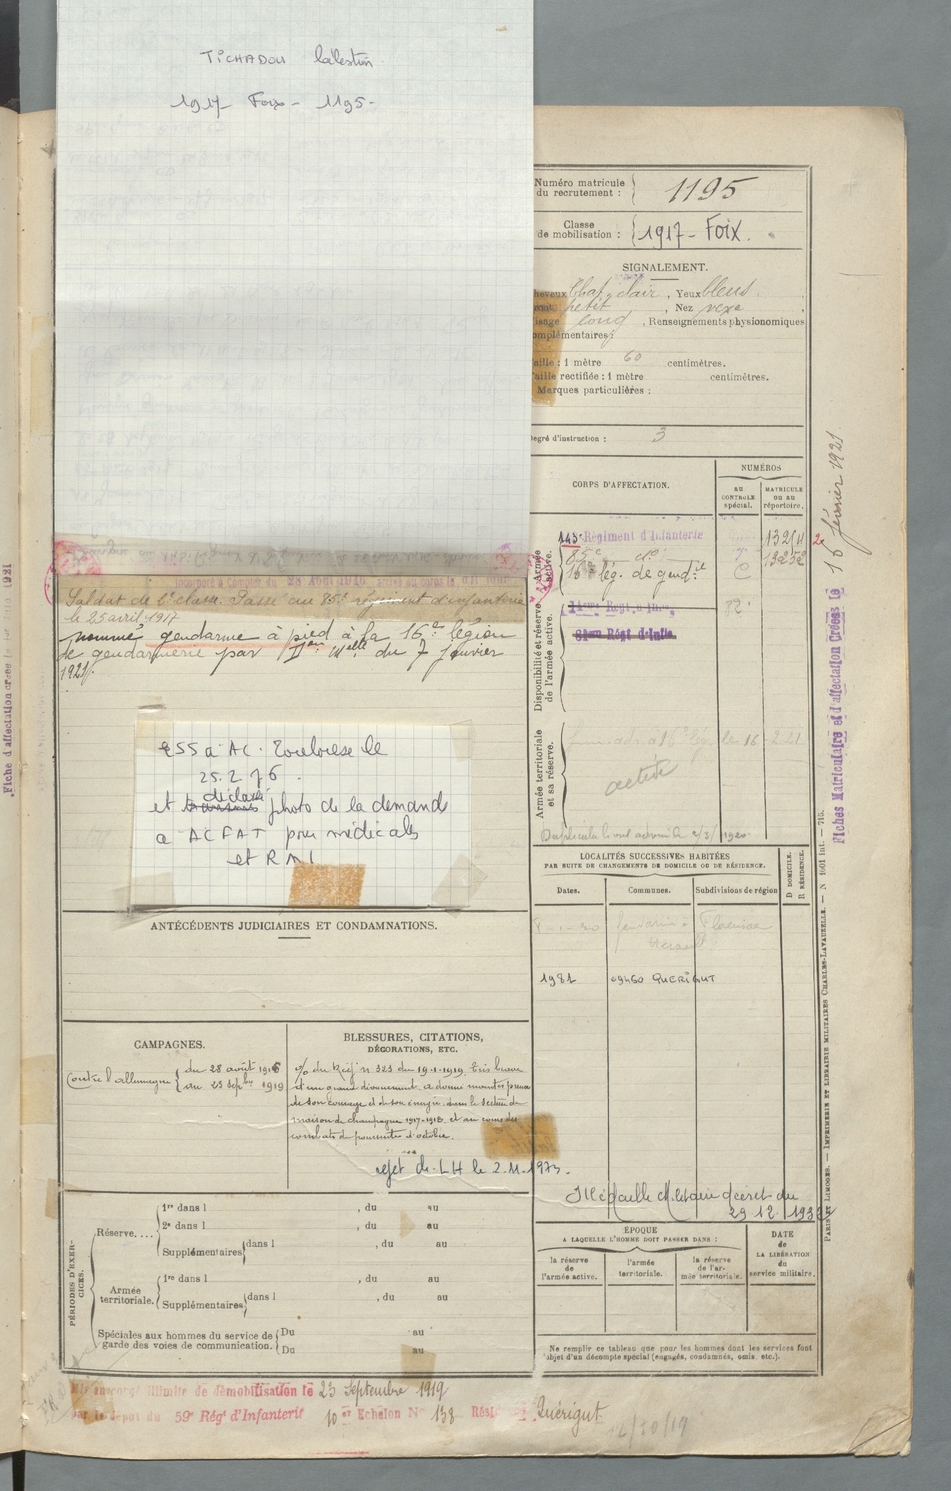 TICHADOU Célestin
1917 Foix - 1195 -
Numéro matricule
du recrutement :
1195
Classe
de mobilisation :
1917 - Foix.
SIGNALEMENT.
Chat. clair, Yeux bleus.
petit, Nez vexe,
long, Renseignements physionomiques
complémentaires :
Taille : 1 mètre 60 centimètres.
Taille rectifiée : 1 mètre centimètres.
Marques particulières :
Degré d'instruction : 3
CORPS D'AFFECTATION.
NUMÉROS
AU CONTRÔLE spécial.
MATRICULE ou au répertoire.
Armée active.
145e Régiment d'Infanterie
13254
85e do
13252
16e lég. de gend.ie
C
Disponibilité et réserve de l'armée active.
82
81eme Régt d'Infie
Armée territoriale et sa réserve.
le 16 2 21
active
16 février 1921
Fiches Matriculaire et d'affectation créées le
Fiche d'affectation créée le
Incorporé à compter du 28 Août 1916
Soldat de 2e classe. Passé au 85e régiment d'infanterie
le 25 avril 1917
nommé gendarme à pied à la 16e légion
de gendarmerie par Don Melle du 7 février
1921.
255 à AC. Toulouse le
25.2.76.
et déclassé photo de la demande
à ACFAT pour médicales
et RMI
LOCALITÉS SUCCESSIVES HABITÉES
PAR SUITE DE CHANGEMENTS DE DOMICILE OU DE RÉSIDENCE.
D DOMICILE.
R RÉSIDENCE.
Dates.
Communes.
Subdivisions de région
Florensac
Hérault
1981 09460 QUERIGUT
ANTÉCÉDENTS JUDICIAIRES ET CONDAMNATIONS.
CAMPAGNES.
Contre l'Allemagne
du 28 août 1916
au 23 Sepbre 1919
BLESSURES, CITATIONS,
DÉCORATIONS, ETC.
% du Régt n. 323 du 19.1.1919. Très brave
et d'un grand dévouement. a donné maintes preuves
de son courage et de son énergie dans le secteur de
maison de champagne 1917-1918, et au cours des
combats de poursuites d'octobre.
rejet de LH le 2.11.1973.
Médaille Militaire décret du
29.12.1933
PÉRIODES D'EXERCICES.
Réserve....
1re dans l , du au
2e dans l , du au
Supplémentaires dans l , du au
du au
Armée territoriale.
1re dans l , du au
Supplémentaires dans l , du au
Spéciales aux hommes du service de
garde des voies de communication.
Du au
Du au
ÉPOQUE
A LAQUELLE L'HOMME DOIT PASSER DANS :
la réserve de l'armée active.
l'armée territoriale.
la réserve de l'armée territoriale.
DATE de LA LIBÉRATION du service militaire.
Ne remplir ce tableau que pour les hommes dont les services font
l'objet d'un décompte spécial (engagés, condamnés, omis, etc.).
PARIS ET LIMOGES. — IMPRIMERIE ET LIBRAIRIE MILITAIRES CHARLES-LAVAUZELLE. — N° 1601 int. — 715.
Mis en congé illimité de démobilisation le 23 Septembre 1919
par le dépôt du 59e Régt d'Infanterie 10er Echelon No 138 Quérigut
12/20/19